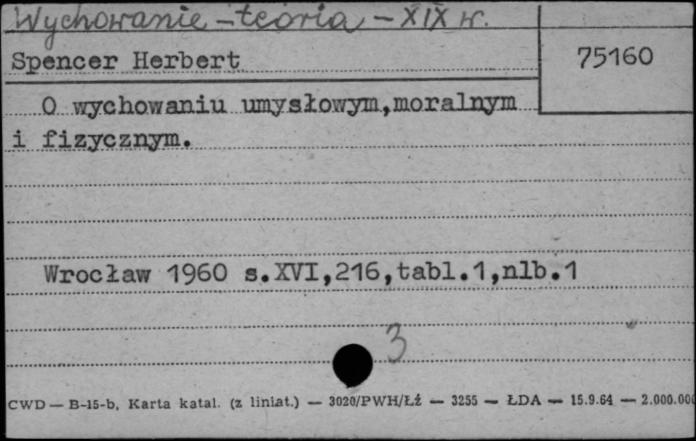 Wychowanie – teoria – XIX w.
Spencer Herbert
75160
O wychowaniu umysłowym,moralnym
i fizycznym.
Wrocław 1960 s.XVI,216,tabl.1,nlb.1
3
CWD — B-15-b, Karta katal. (z liniat.) — 3020/PWH/Łź — 3255 — ŁDA — 15.9.64 — 2.000.000